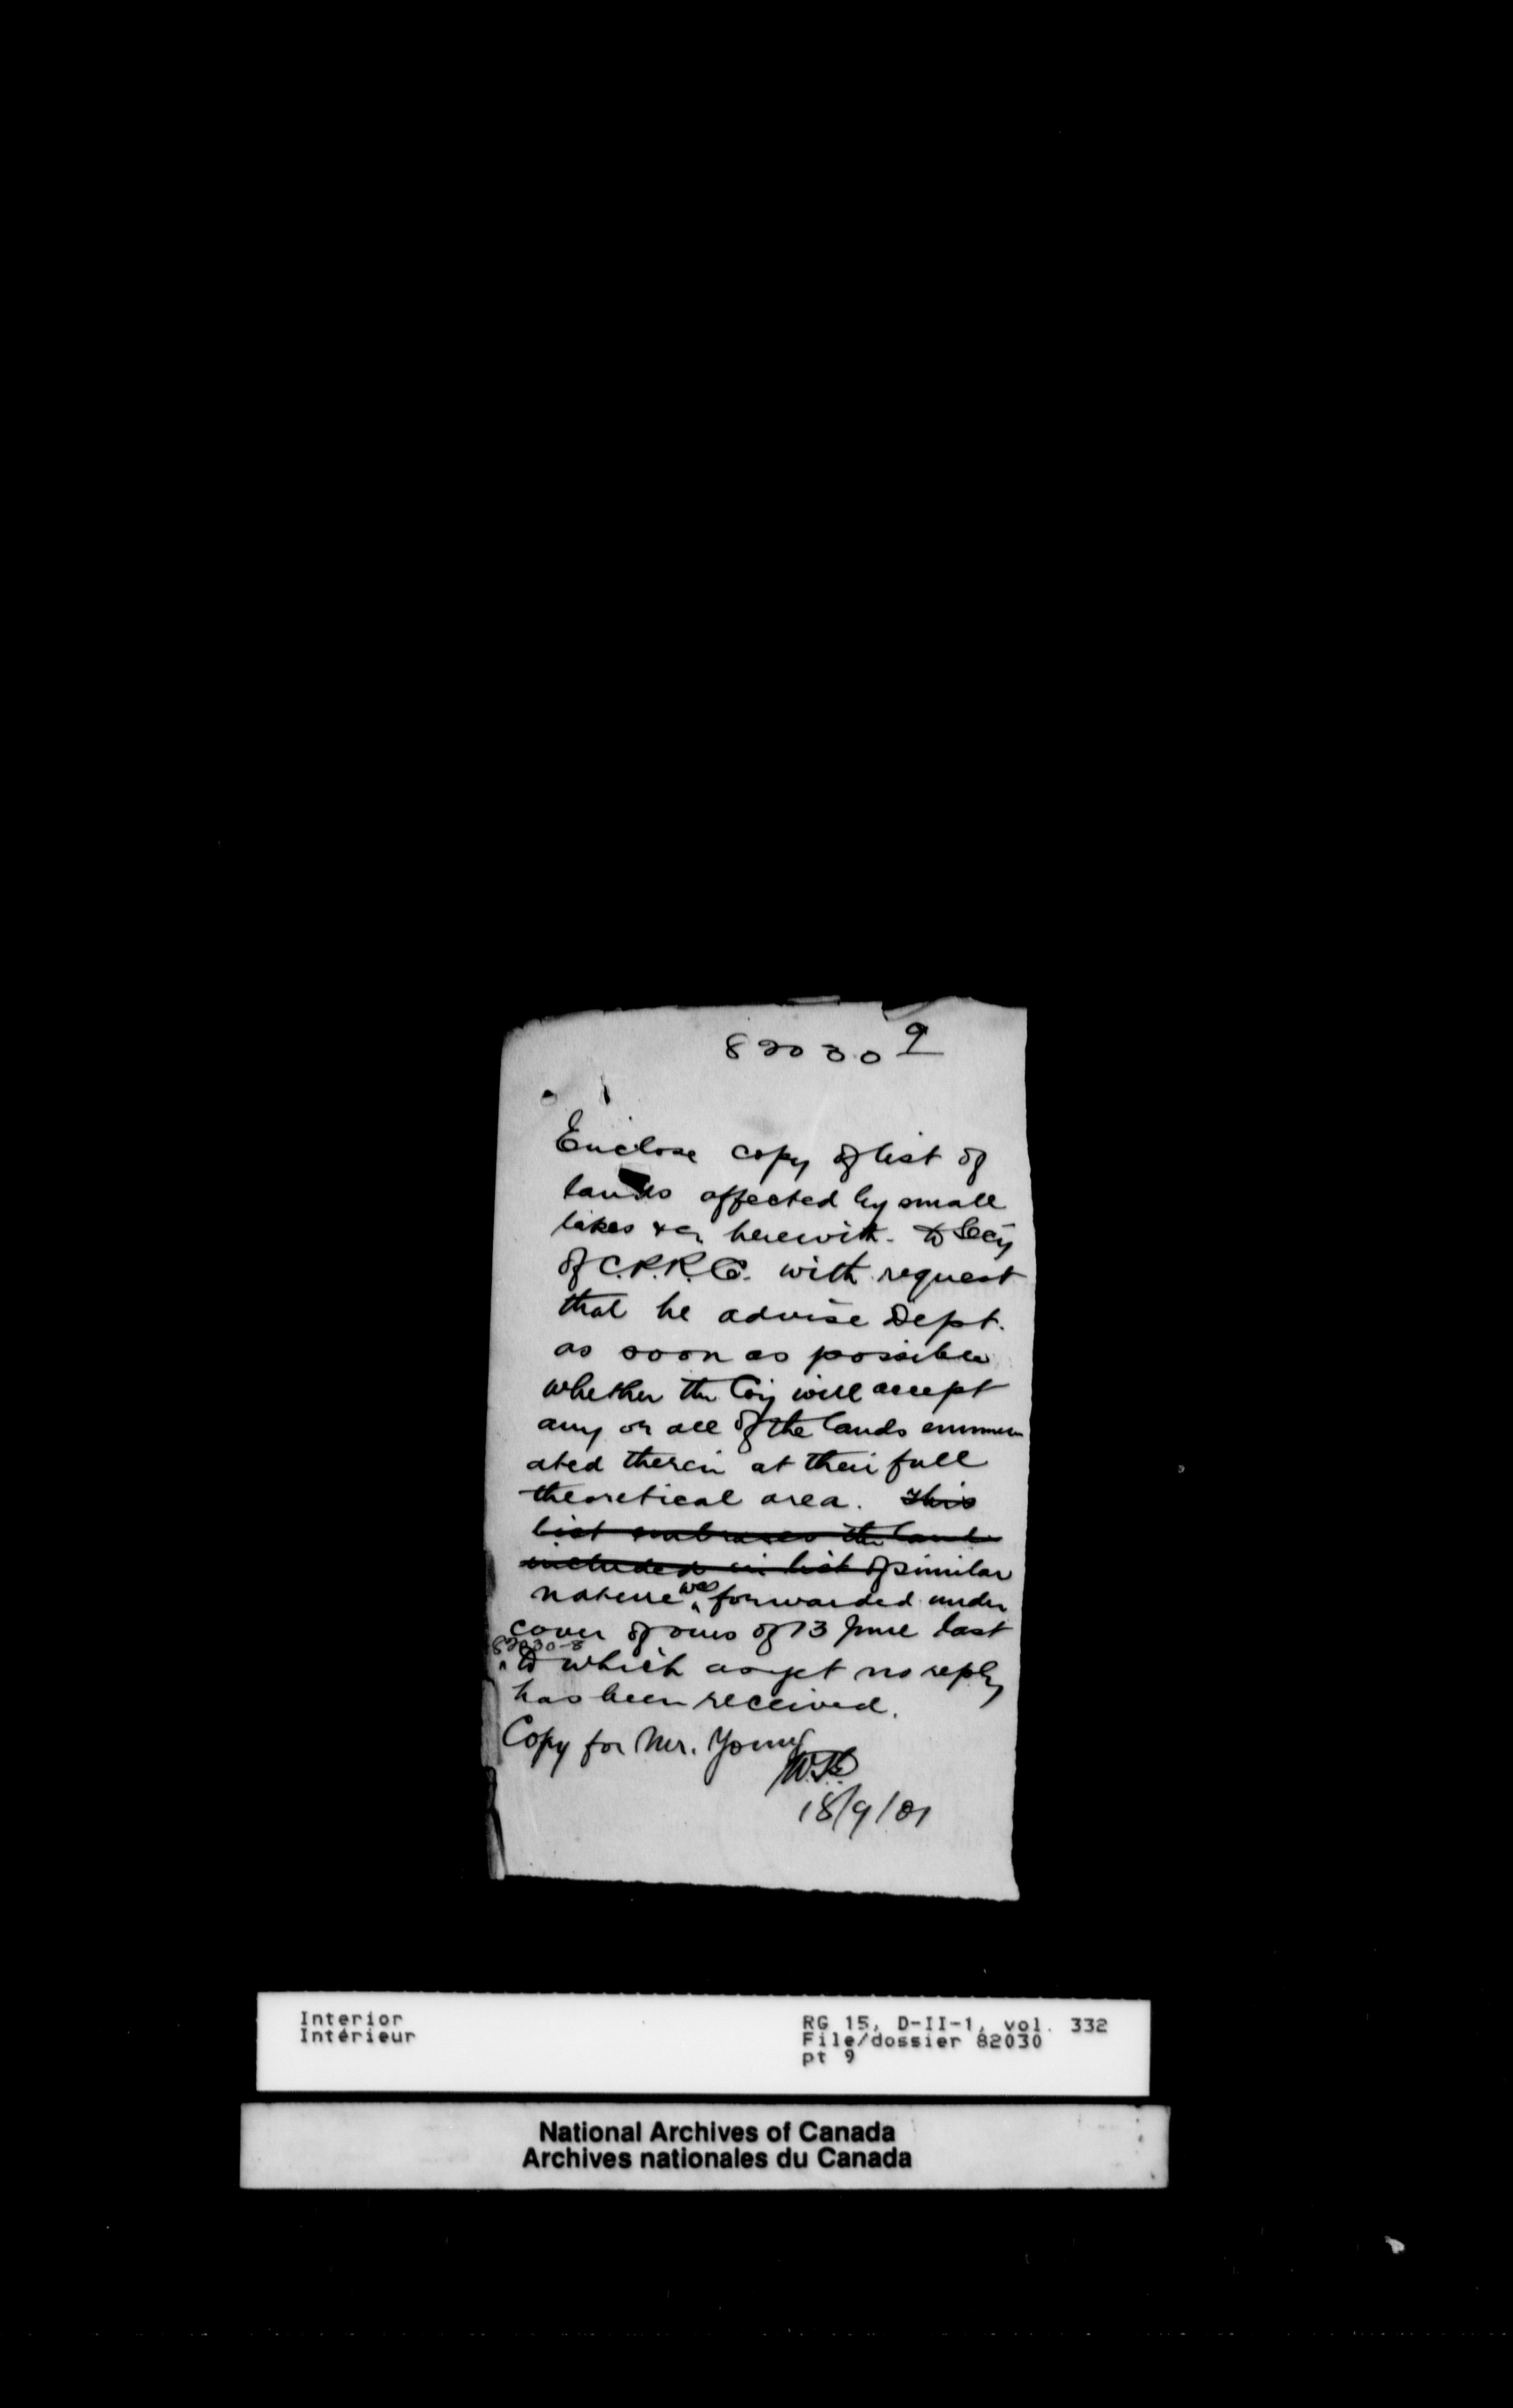 82030 9
Enclose copy of list of
lands affected by small
lakes &c. herewith to Secy
of C.P.R. Co. with request
that he advise Dept.
as soon as possible
whether the Coy will accept
any or all of the lands enumer
ated therein at their full
theoretical area. This
list embraces the lands
included in list of similar
nature was forwarded under
cover of ours of 13 June last
82030-8
to which as yet no reply
has been received.
Copy for Mr. Young
18/9/01
Interior
Intérieur
RG 15, D-II-1, vol. 332
File/dossier 82030
pt 9
National Archives of Canada
Archives nationales du Canada